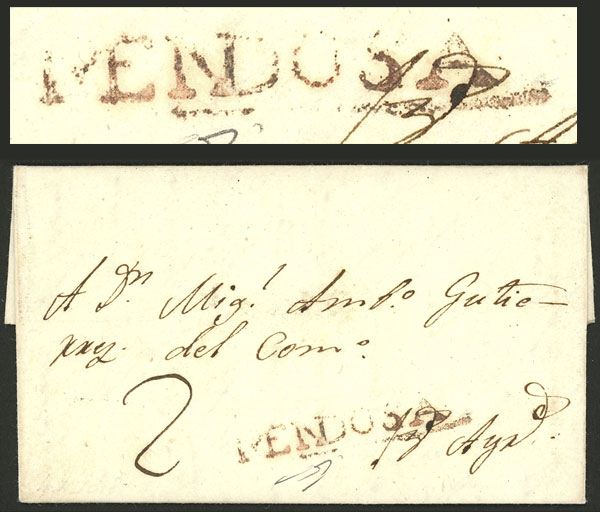 PENDOSA
A Dn. Migl. Ambo. Gutie-
rrez. del Como.
2
PENDOSA